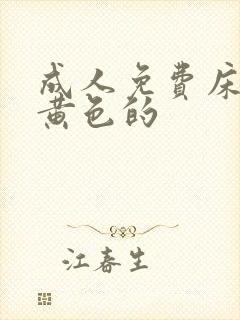 成人免費床
黄色的
江春生